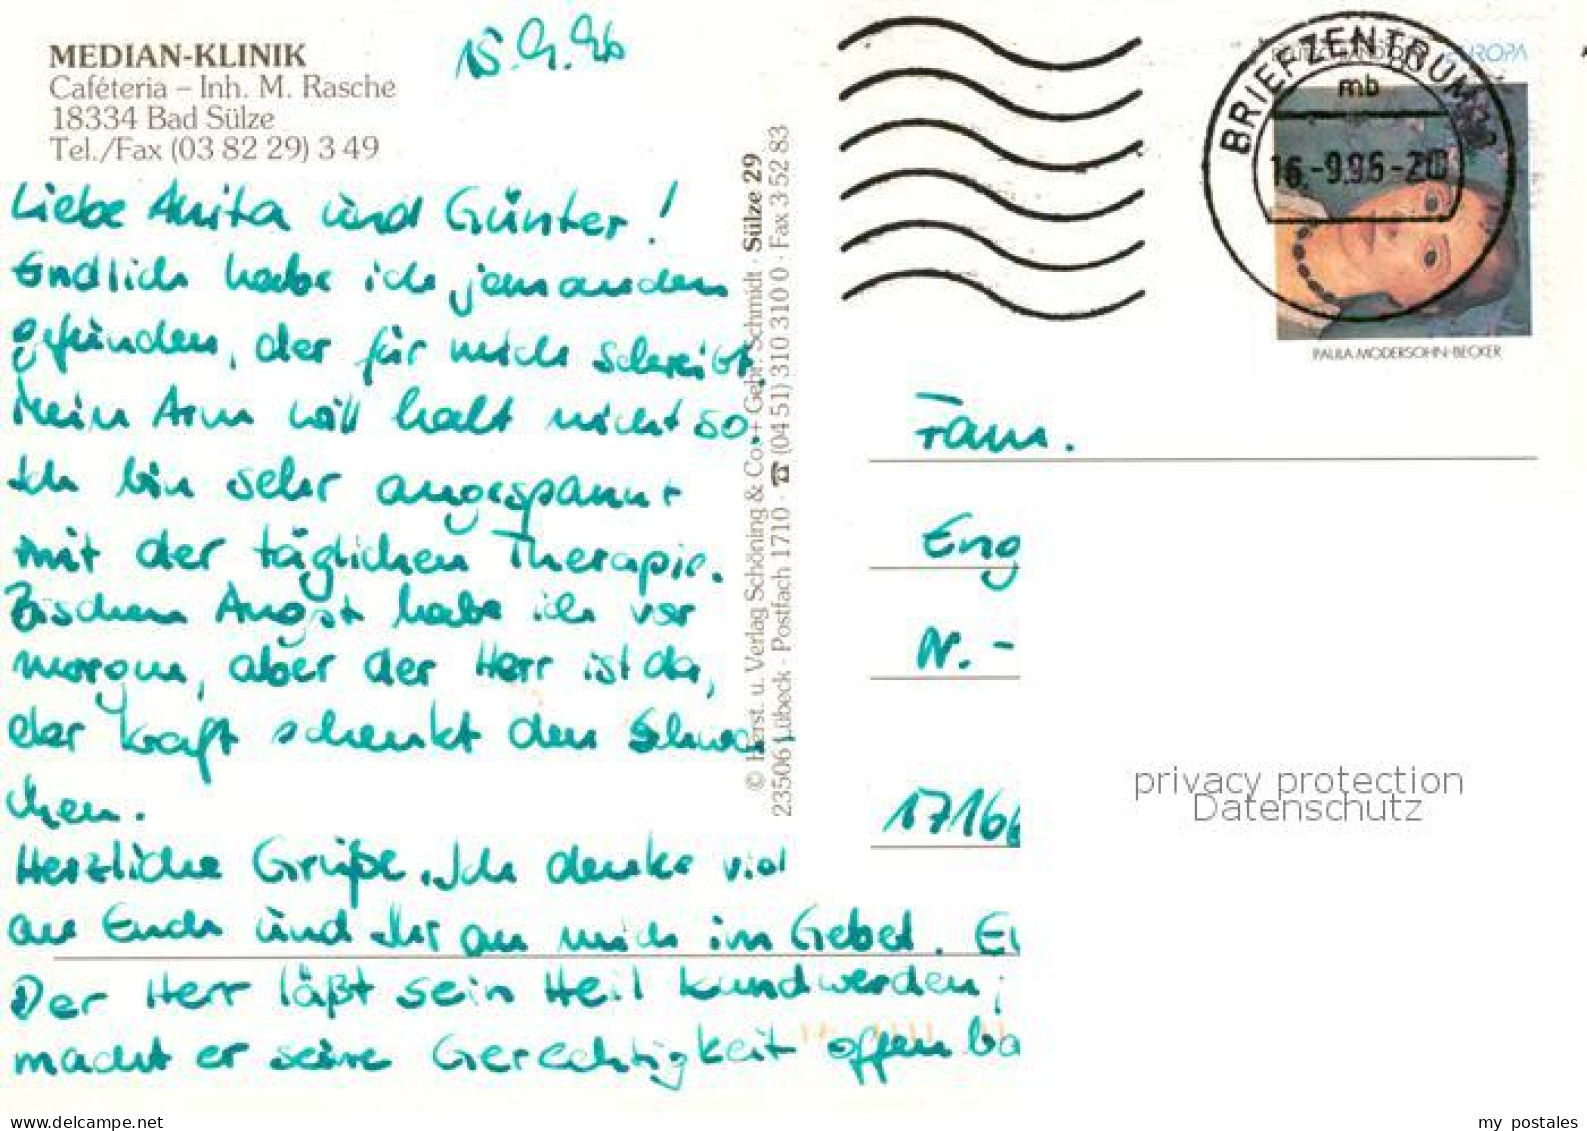 MEDIAN-KLINIK
Caféteria – Inh. M. Rasche
18334 Bad Sülze
Tel./Fax (03 82 29) 3 49
15.9.96
Liebe Anita und Günter!
Endlich habe ich jemanden
gefunden, der für mich schreibt.
Mein Arm will halt nicht so.
Ich bin sehr angespannt
mit der täglichen Therapie.
Bischen Angst habe ich vor
morgen, aber der Herr ist da,
der Kraft schenkt den Schwa
chen.
Herzliche Grüße. Ich denke viel
an Euch und Ihr an mich im Gebet.
Der Herr läßt sein Heil kundwerden;
macht er seine Gerechtigkeit offenba
© Herst. u. Verlag Schöning & Co. + Gebr. Schmidt · Sülze 29
23506 Lübeck · Postfach 1710 · ☎ (04 51) 310 310 0 · Fax 3 52 83
BRIEFZENTRUM
mb
16.-9.96-20
EUROPA
PAULA MODERSOHN-BECKER
Fam.
Eng
Nr. -
1716
privacy protection
Datenschutz
my postales